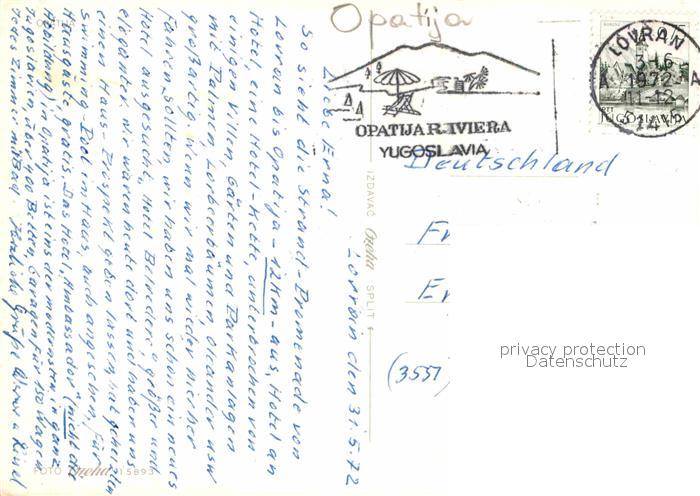 Opatija
OPATIJA RIVIERA
YUGOSLAVIA
LOVRAN
1972
JUGOSLAVIJA
Deutschland
Fr
Er
(3551
privacy protection
Datenschutz
IZDAVAČ SPLIT
Lovran den 31.5.72
Liebe Erna!
So sieht die Strand-Promenade von
Lovran bis Opatija - 12 km - aus, Hotel an
Hotel, eine Hotel-Kette, unterbrochen von
einigen Villen, Gärten und Parkanlagen
mit Palmen, Lorbeerbäumen, Oleander usw
großartig. Wenn wir mal wieder hierher
fahren sollten, wir haben uns schon ein neues
Hotel ausgesucht, Hotel Belvedere, größer und
eleganter - waren heute dort und haben uns
einen Haus-Prospekt geben lassen,
Swimming Pool im Haus, auch angesehen, für
Hausgäste gratis. Das Hotel "Ambassador" (nicht der
Abbildung) in Opatija ist eins der modernsten in ganz
Jugoslavien, über 400 Betten, Garagen für 150 Wagen
jedes Zimmer mit Bad. Herzliche Grüße
FOTO 15893